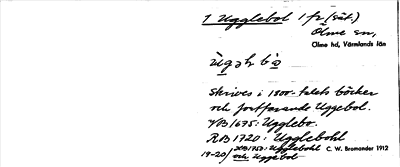 1 Ugglebol 1 fr (sät.)
Ölme sn,
Ölme hd, Värmlands län
Skrives i 1800-talets böcker
och fortfarande Uggebol.
VB 1675: Ugglebo.
RB 1720: Ugglebohl
19-20/ JB 1752: Ugglebohl C. W. Bromander 1912
och Uggebol